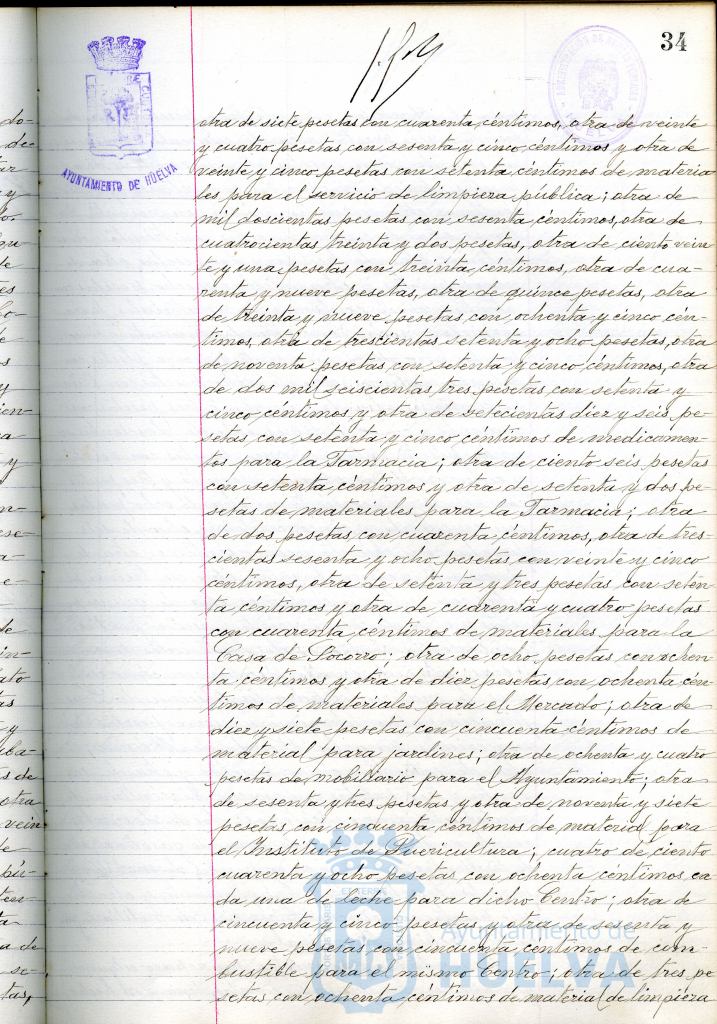 34
AYUNTAMIENTO DE HUELVA
otra de siete pesetas con cuarenta céntimos, otra de veinte
y cuatro pesetas con sesenta y cinco céntimos y otra de
veinte y cinco pesetas con setenta céntimos de materia
les para el servicio de limpieza pública; otra de
mil doscientas pesetas con sesenta céntimos, otra de
cuatrocientas treinta y dos pesetas, otra de ciento vein
te y una pesetas con treinta céntimos, otra de cua-
renta y nueve pesetas, otra de quince pesetas, otra
de treinta y nueve pesetas con ochenta y cinco cén-
timos, otra de trescientas setenta y ocho pesetas, otra
de noventa pesetas con setenta y cinco céntimos, otra
de dos mil seiscientas tres pesetas con setenta y
cinco céntimos y otra de setecientas diez y seis pe-
setas con setenta y cinco céntimos de medicamen-
tos para la Farmacia; otra de ciento seis pesetas
con setenta céntimos y otra de setenta y dos pe-
setas de materiales para la Farmacia; otra
de dos pesetas con cuarenta céntimos, otra de tres-
cientas sesenta y ocho pesetas con veinte y cinco
céntimos, otra de setenta y tres pesetas con seten-
ta céntimos y otra de cuarenta y cuatro pesetas
con cuarenta céntimos de materiales para la
Casa de Socorro; otra de ocho pesetas con ochen-
ta céntimos y otra de diez pesetas con ochenta cén-
timos de materiales para el Mercado; otra de
diez y siete pesetas con cincuenta céntimos de
material para jardines; otra de ochenta y cuatro
pesetas de mobiliario para el Ayuntamiento; otra
de sesenta y tres pesetas y otra de noventa y siete
pesetas con cincuenta céntimos de material para
el Instituto de Puericultura; cuatro de ciento
cuarenta y ocho pesetas con ochenta céntimos ca-
da una de leche para dicho Centro; otra de
cincuenta y cinco pesetas y otra de sesenta y
nueve pesetas con cincuenta céntimos de com-
bustible para el mismo Centro; otra de tres pe
setas con ochenta céntimos de material de limpieza
Ayuntamiento de
HUELVA